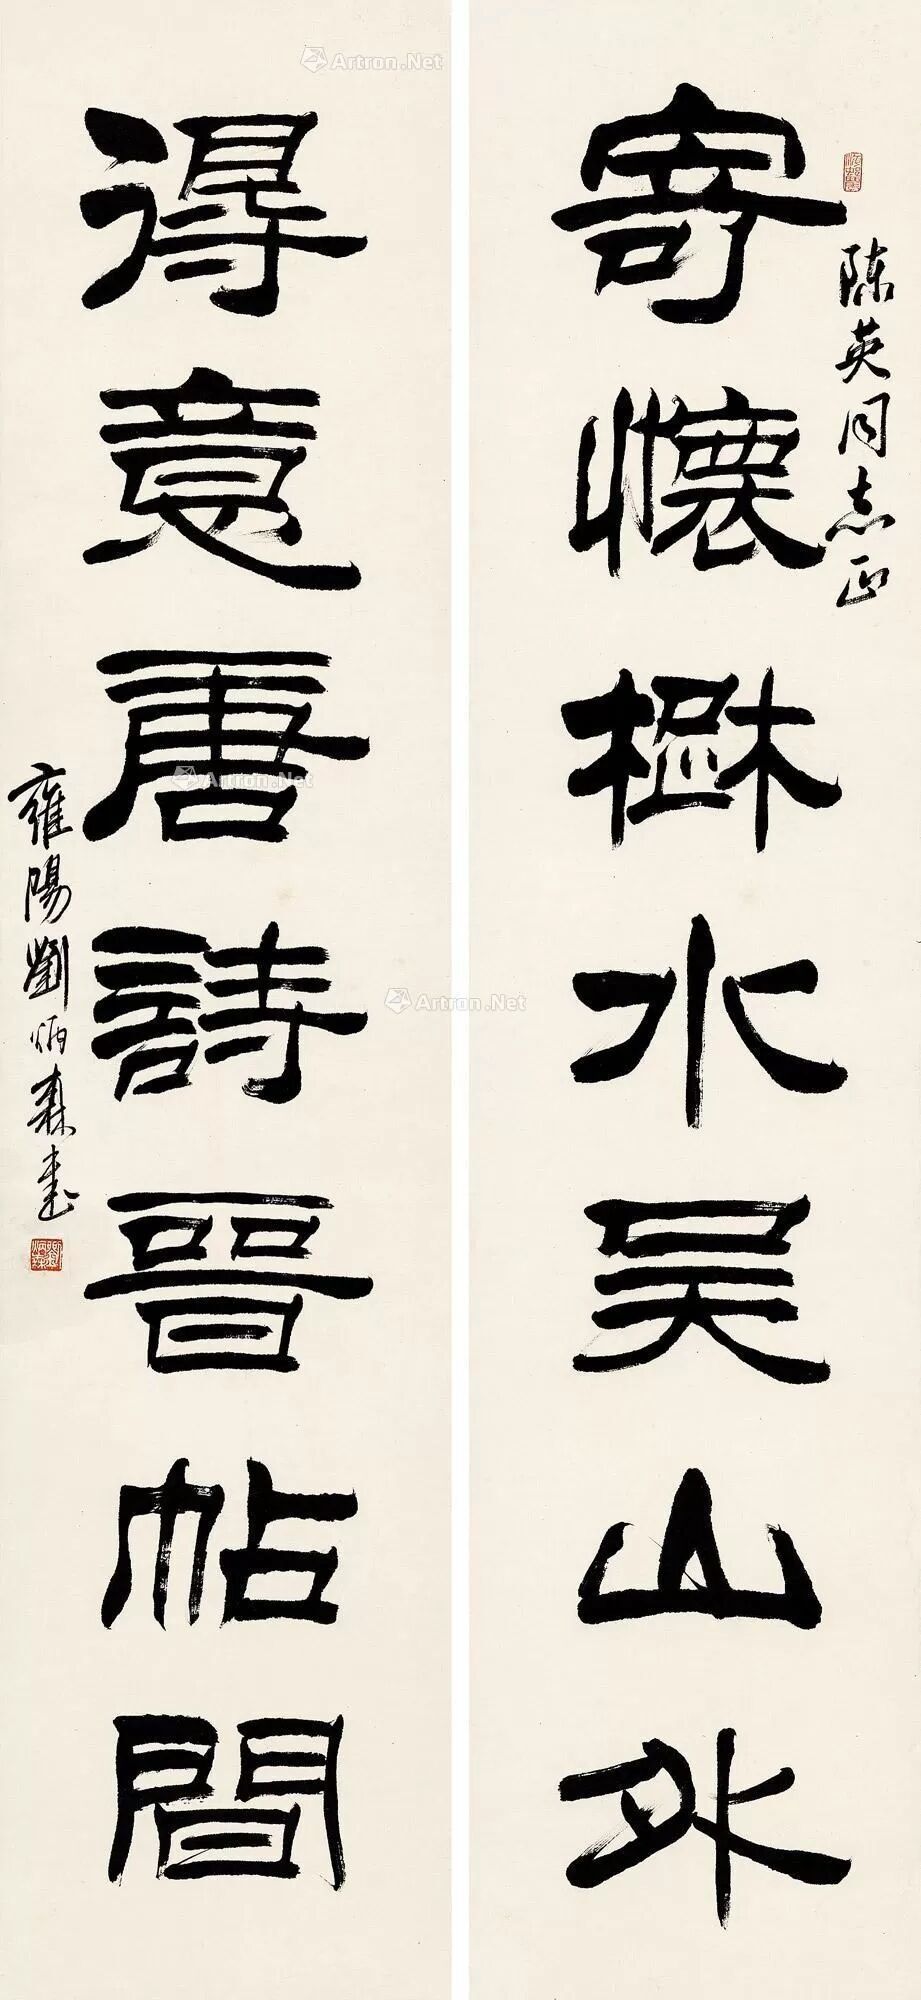 陈英同志正
寄懷楚水吳山外
得意唐詩晉帖間
雍陽劉炳森書
Artron.Net
Artron.Net
Artron.Net